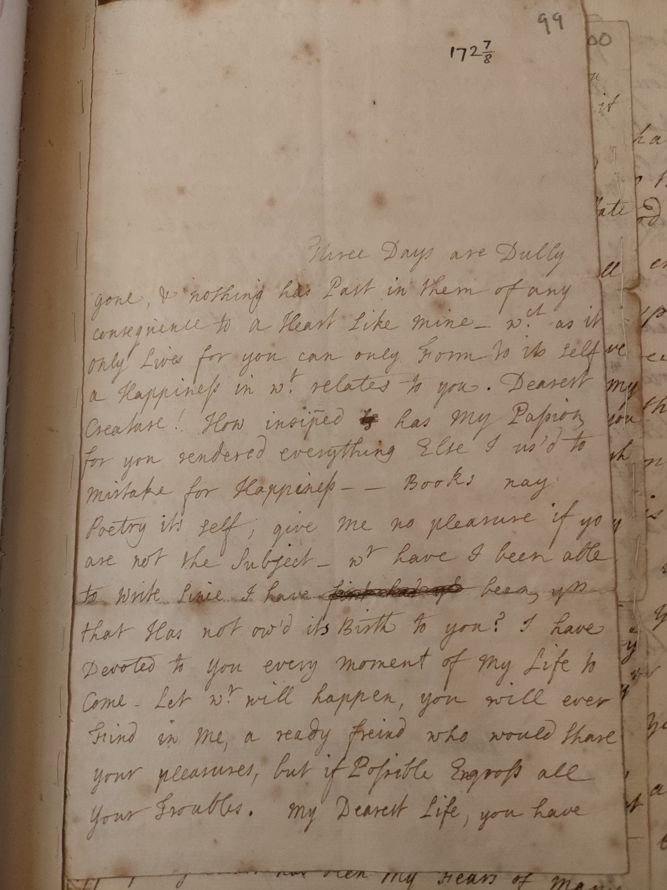 99
172 7/8
Three Days are Dully
gone, & nothing has Past in them of any
consequence to a Heart Like mine – wch as it
only Lives for you can only Form to its self
a Happiness in wt relates to you. Dearest
Creature! How insiped has My Passion
for you rendered everything Else I us'd to
mistake for Happiness – – Books nay
Poetry its self, give Me no pleasure if you
are not the Subject – wt have I been able
to Write Since I have been yrs
that Has not ow'd its Birth to you? I have
Devoted to you every moment of My Life to
Come – Let wt will happen, you will ever
Find in Me, a ready freind who would share
your pleasures, but if Possible Engross all
Your Troubles. My Dearest Life, you have